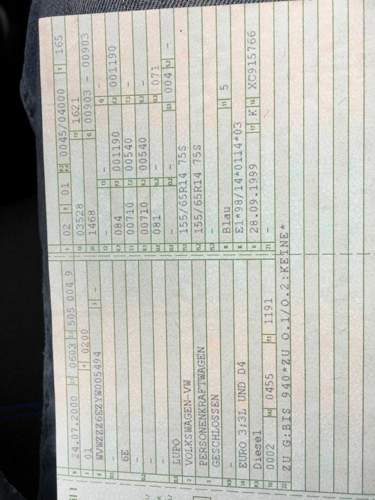 24.07.2000 0603 505 004 9
01 0200 -
WVWZZZ6EZYW005494
-
6E
-
-
LUPO
VOLKSWAGEN-VW
PERSONENKRAFTWAGEN
GESCHLOSSEN
-
EURO 3;3L UND D4
Diesel
0002 0455 1191
02 01 0045/04000 165
03528 1621
1468 00903 - 00903
- - -
084 001190 001190
00710 00540 -
00710 00540 -
081 - 071
- - 004 -
155/65R14 75S
155/65R14 75S
-
Blau 5
E1*98/14*0114*03
28.09.1999 K XC915766
-
ZU G:BIS 940*ZU O.1/O.2:KEINE*